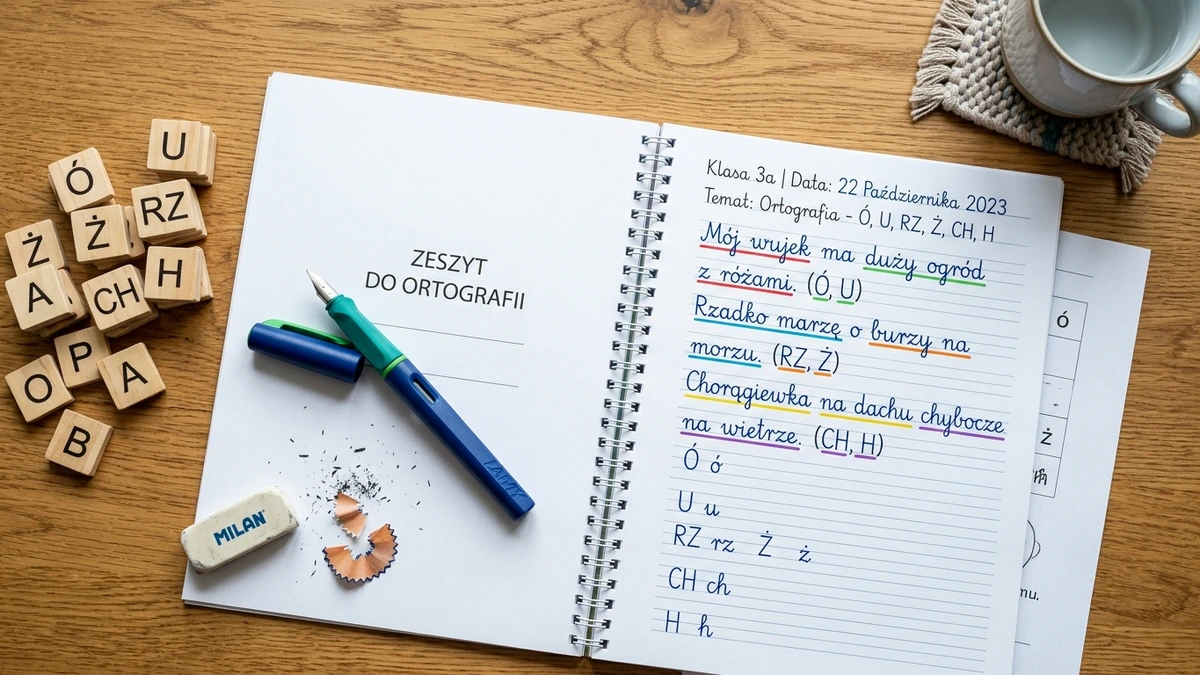 U
Ó
RZ
Ż
Ż
H
A
CH
P
O
A
B
ZESZYT
DO ORTOGRAFII
LAMY
MILAN
Klasa 3a | Data: 22 Października 2023
Temat: Ortografia - Ó, U, RZ, Ż, CH, H
Mój wujek ma duży ogród
z różami. (Ó, U)
Rzadko marzę o burzy na
morzu. (RZ, Ż)
Chorągiewka na dachu chybocze
na wietrze. (CH, H)
Ó ó
U u
RZ rz Ż ż
CH ch
H h
Ó
Ż
mu.